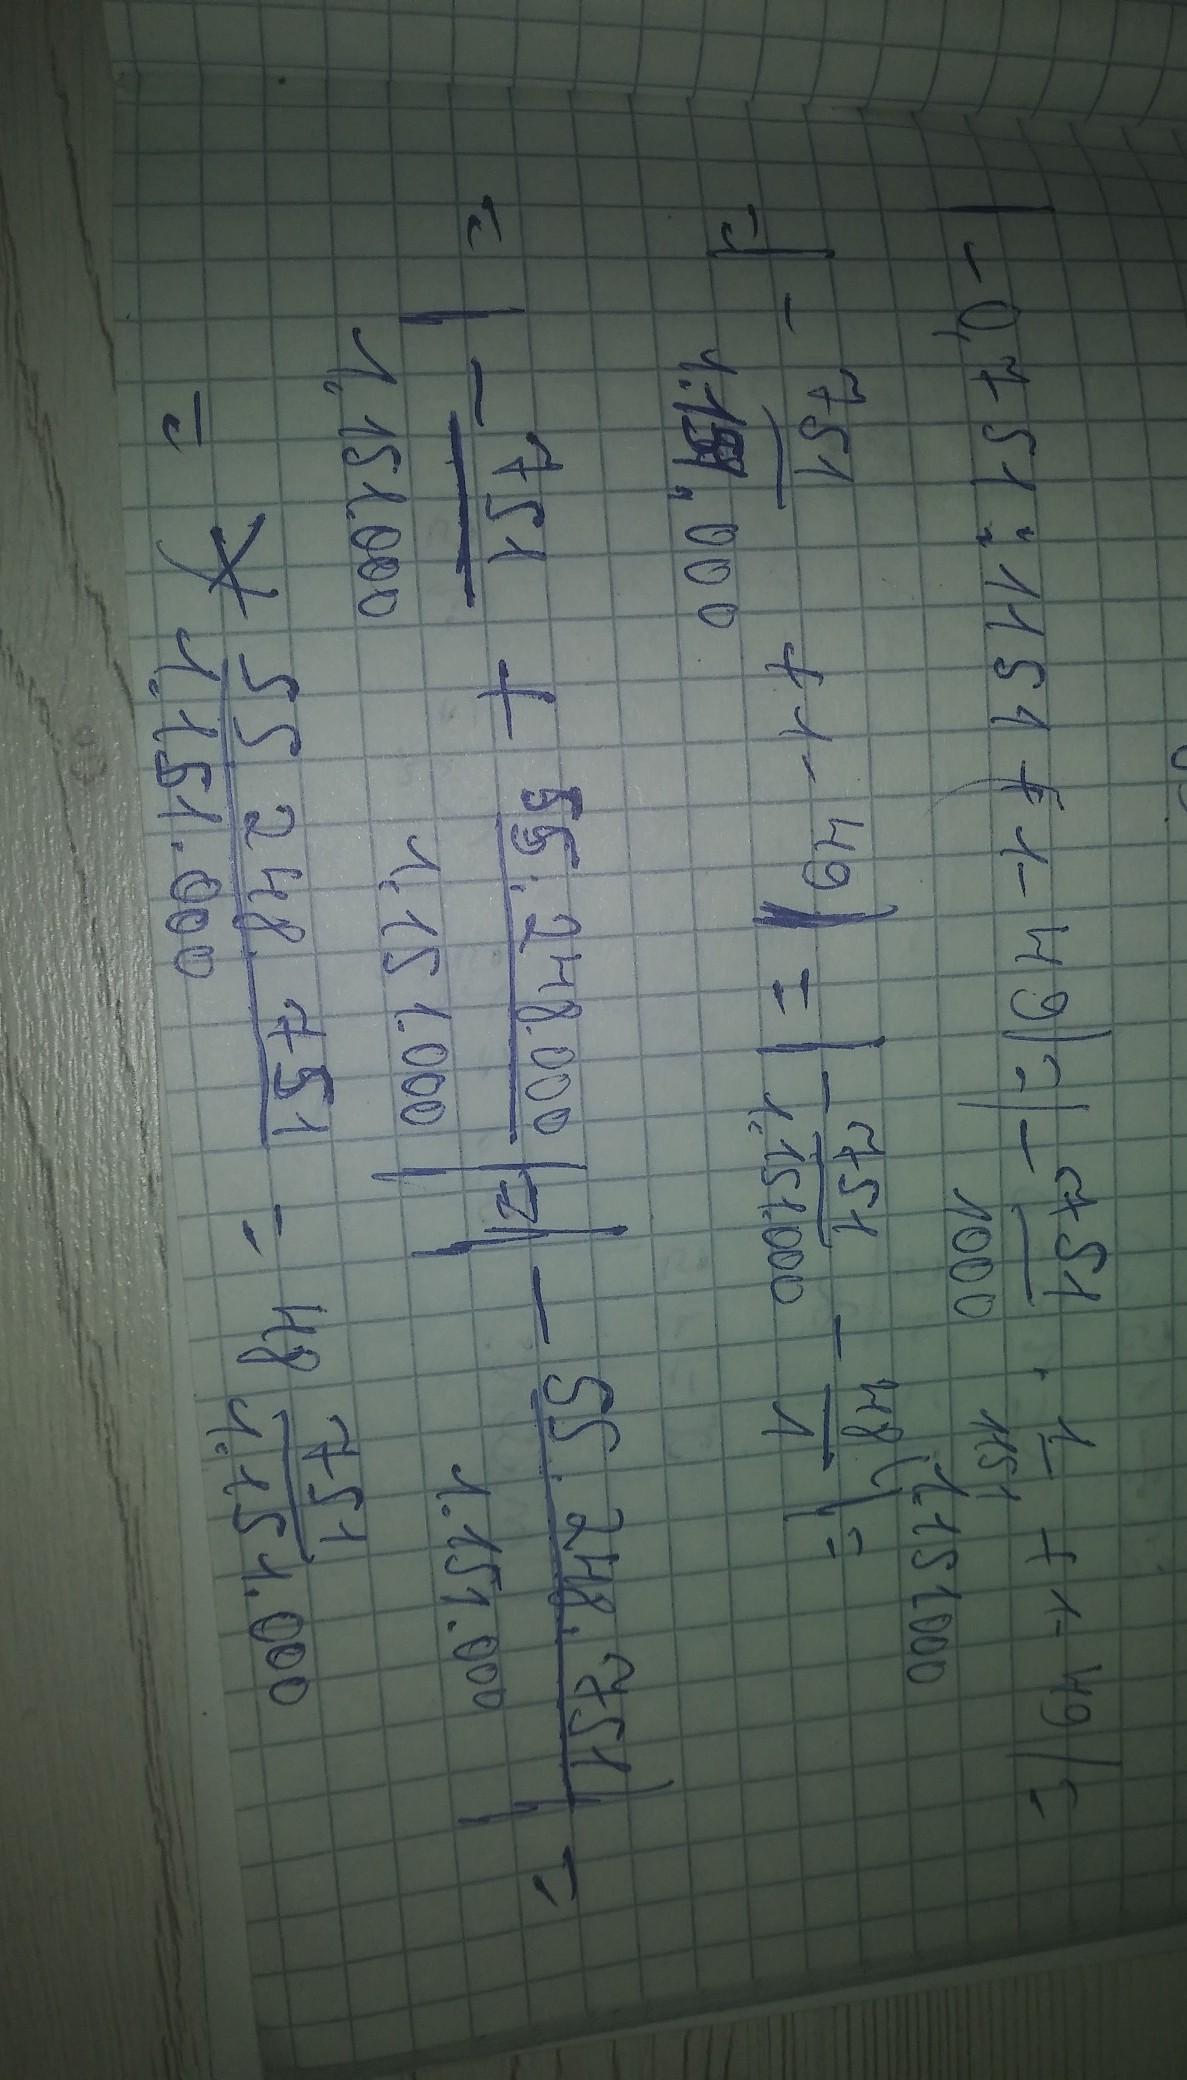 |-0,751:1151+1-49|=|-751/1000 · 1/1151 + 1-49|=
=|-751/1.151.000 +1-49|=|-751/1.151.000 - 48/1 (1.151000|=
=|-751/1.151.000 + 55.248.000/1.151.000|=|-55.248.751/1.151.000|=
= 55 248 751/1.151.000 = 48 751/1.151.000